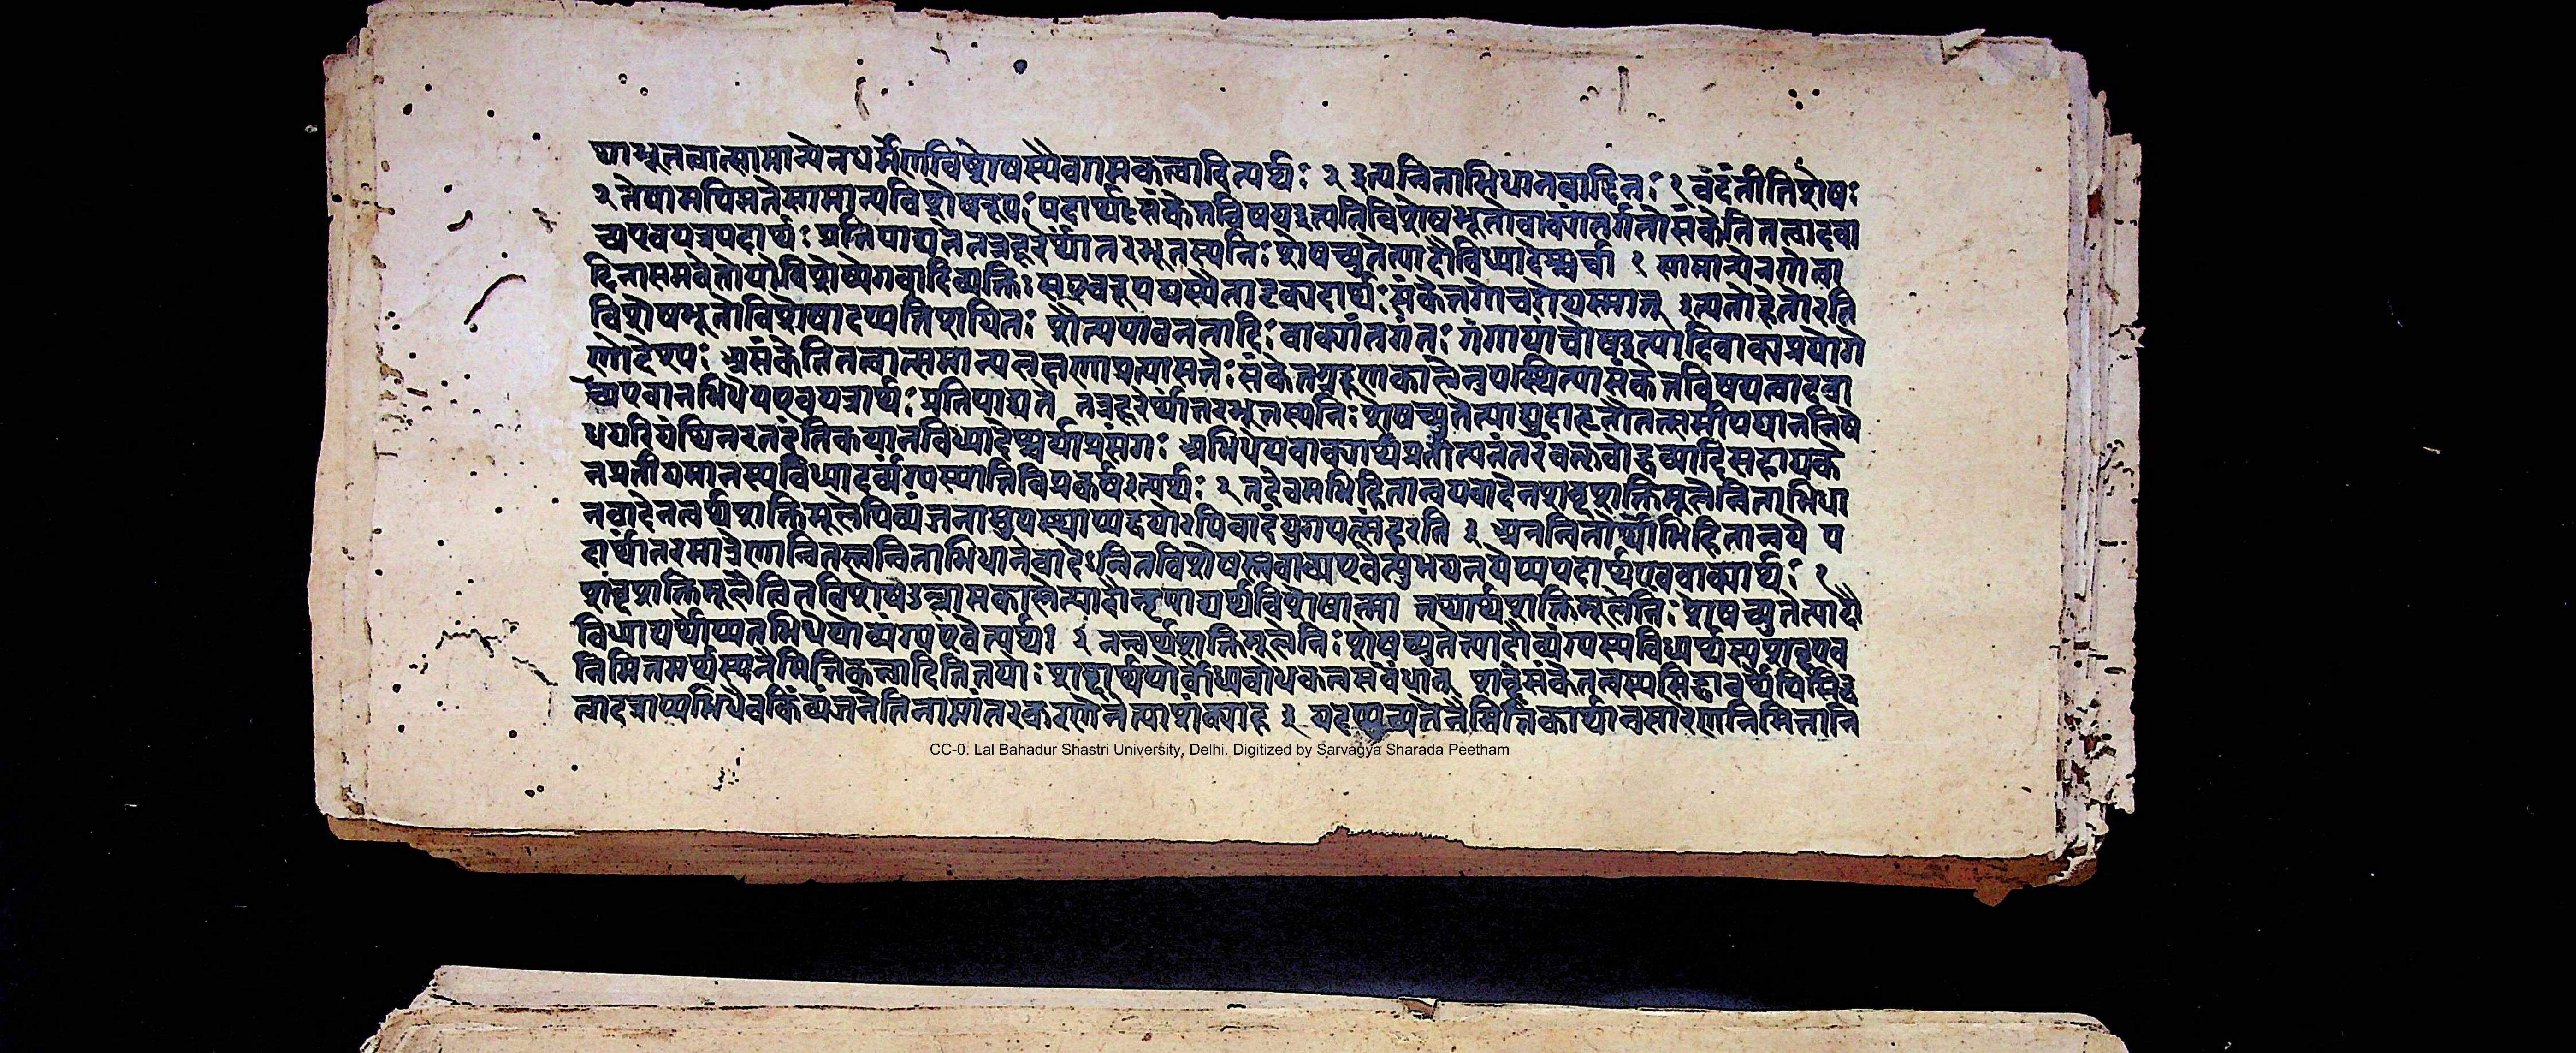 थाभूतत्वात्सामान्येनधर्मेणविशेषस्यैवगमकत्वादित्यर्थः २ इत्यन्विताभिधानवादिनः १ वदंतीतिशेषः
२ तेषामपिमतेसामान्यविशेषरूपः पदार्थः संकेतविषयइत्यतिविशेषभूतोवाक्यांतर्गतोसंकेतितत्वादवा
च्यएवयत्रपदार्थः प्रतिपाद्यतेतत्रदूरेर्थांतरभूतस्यनिः शेषच्युतेत्यादौविध्यादेश्चर्चा १ सामान्येनगोत्वा
दिनासमवेतोयोविशेष्यगवादिव्यक्तिः सएवरूपंयस्यैतादृक्पदार्थः संकेतगोचरोयस्मात् इत्यतोहेतोरति
विशेषभूतोविशेषादप्यतिशयितः शैत्यपावनतादिः वाक्यांतर्गतः गंगायांघोषइत्यादिवाक्यप्रयोगे
णोद्देश्यः असंकेतितत्वात्समान्यलक्षणाप्रत्यासत्तेः संकेतग्रहणकालेनुपस्थित्यासंकेतविषयत्वादवा
च्यएवानभिधेयएवयत्रार्थः प्रतिपाद्यते तत्रदूरेर्थांतरभूतस्यनिः शेषच्युतेत्याद्युदाहृतौतत्समीपयाननिषे
धपरिपंथिनस्तदंतिकयानविध्यादेश्चर्याप्रसंगः अभिधेयवाक्यार्थप्रतीत्यनंतरंवक्तृबोद्धव्यादिसहायके
नप्रतीयमानस्यविध्यादेर्व्यंग्यस्यातिविप्रकर्षइत्यर्थः २ तदेवमभिहितान्वयवादेनशब्दशक्तिमूलेन्विताभिधा
नवादेनत्वर्थशक्तिमूलेपिव्यंजनामुपस्थाप्यद्वयोरपिवादंयुगपत्संहरति ३ अनन्वितोर्थोभिहितान्वये प
दार्थांतरमात्रेणान्वितस्त्वन्विताभिधानवादेन्वितविशेषस्त्ववाच्यएवेत्युभयनयेप्यपदार्थएववाक्यार्थः १
शब्दशक्तिमूलेन्वितविशेषउल्लासकालेत्यादौनृपाद्यर्थविशेषात्मा तथार्थशक्तिमूलेनिः शेषच्युतेत्यादौ
विध्याद्यर्थोप्यनभिधेयोव्यंग्यएवेत्यर्थः २ नन्वर्थशक्तिमूलेनिः शेषच्युतेत्यादौव्यंग्यस्यविध्यर्थस्यशब्दएव
निमित्तमर्थस्यनैमित्तिकत्वादितितयोः शब्दार्थयोर्बोध्यबोधकत्वसंबंधात् शब्देसंकेतत्वस्यसिद्धावर्थेपिसिद्ध
त्वादत्राप्यभिधैवकिंव्यंजनेतिनामांतरकरणेनेत्याशंक्याह ३ यदप्युच्यतेनैमित्तिकार्थानुसारेणनिमित्तानि
CC-0. Lal Bahadur Shastri University, Delhi. Digitized by Sarvagya Sharada Peetham